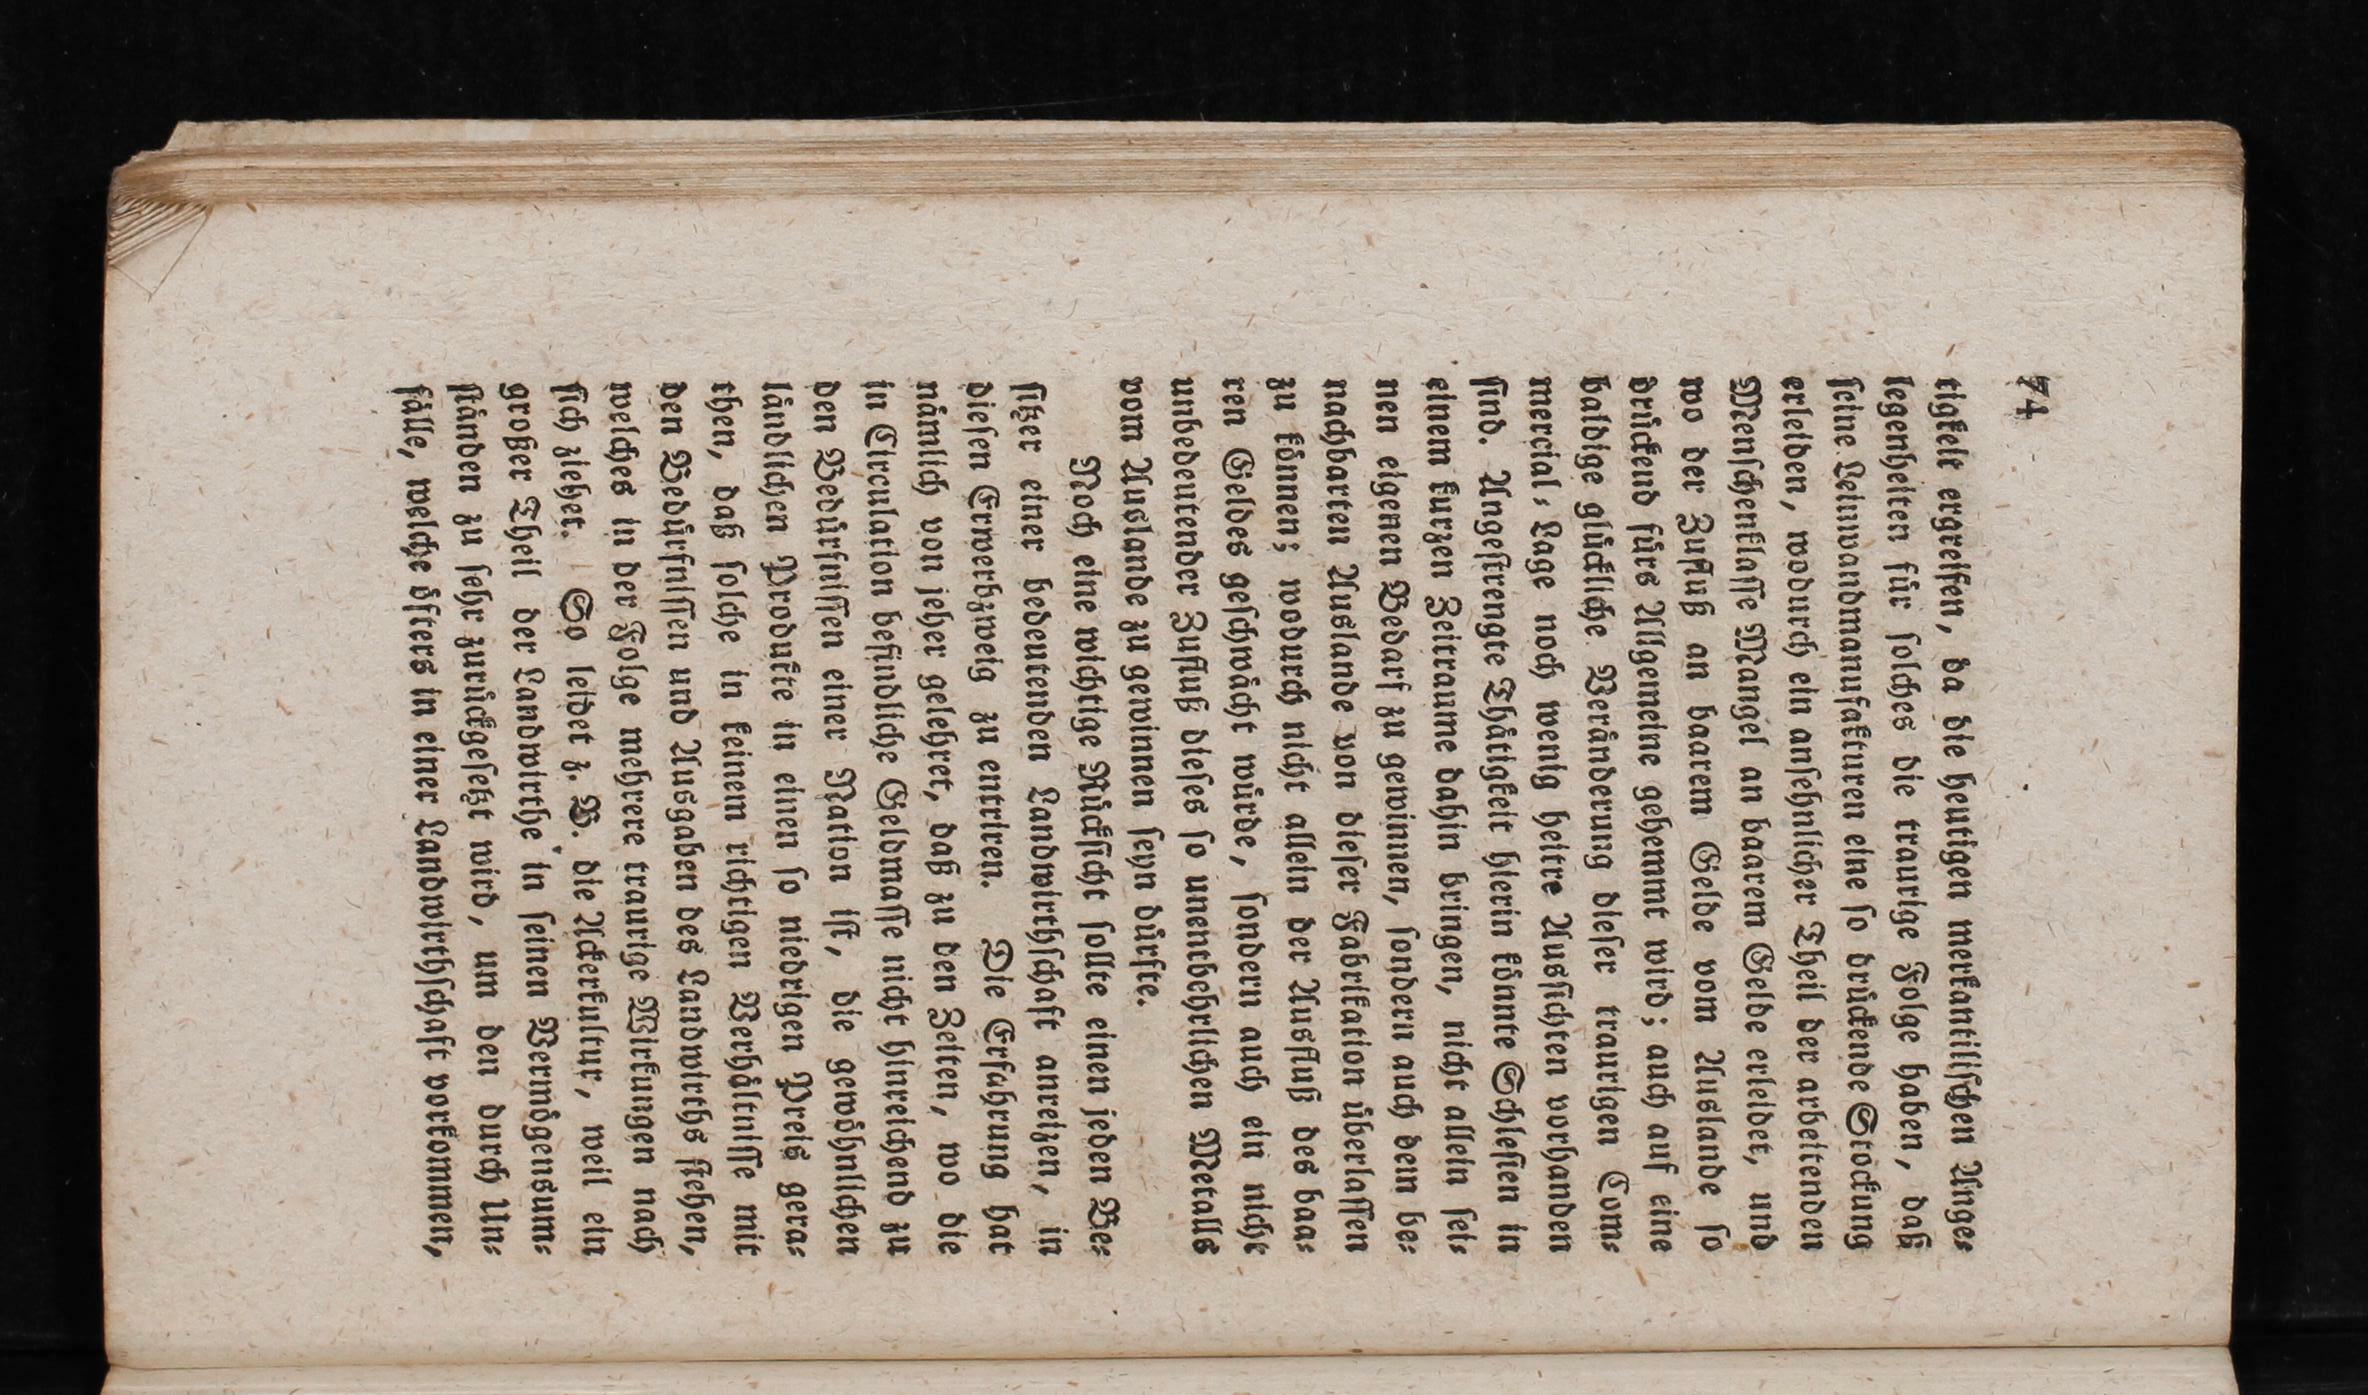 74
tigkeit ergreifen, da die heutigen merkantilischen Ange⸗
legenheiten für solches die traurige Folge haben, daß
seine Leinwandmanufakturen eine so drückende Stockung
erleiden, wodurch ein ansehnlicher Theil der arbeitenden
Menschenklasse Mangel an baarem Gelde erleidet, und
wo der Zufluß an baarem Gelde vom Auslande so
drückend fürs Allgemeine gehemmt wird; auch auf eine
baldige glückliche Veränderung dieser traurigen Com⸗
mercial⸗Lage noch wenig heitre Aussichten vorhanden
sind. Angestrengte Thätigkeit hierin könnte Schlesien in
einem kurzen Zeitraume dahin bringen, nicht allein sei⸗
nen eigenen Bedarf zu gewinnen, sondern auch dem be⸗
nachbarten Auslande von dieser Fabrikation überlassen
zu können; wodurch nicht allein der Ausfluß des baa⸗
ren Geldes geschwächt würde, sondern auch ein nicht
unbedeutender Zufluß dieses so unentbehrlichen Metalls
vom Auslande zu gewinnen seyn dürfte.
Noch eine wichtige Rücksicht sollte einen jeden Be⸗
sitzer einer bedeutenden Landwirthschaft anreizen, in
diesen Erwerbzweig zu entriren. Die Erfahrung hat
nämlich von jeher gelehret, daß zu den Zeiten, wo die
in Circulation befindliche Geldmasse nicht hinreichend zu
den Bedürfnissen einer Nation ist, die gewöhnlichen
ländlichen Produkte in einen so niedrigen Preis gera⸗
then, daß solche in keinem richtigen Verhältnisse mit
den Bedürfnissen und Ausgaben des Landwirths stehen,
welches in der Folge mehrere traurige Wirkungen nach
sich ziehet. So leidet z. B. die Ackerkultur, weil ein
großer Theil der Landwirthe in seinen Vermögensum⸗
ständen zu sehr zurückgesetzt wird, um den durch Un⸗
fälle, welche öfters in einer Landwirthschaft vorkommen,